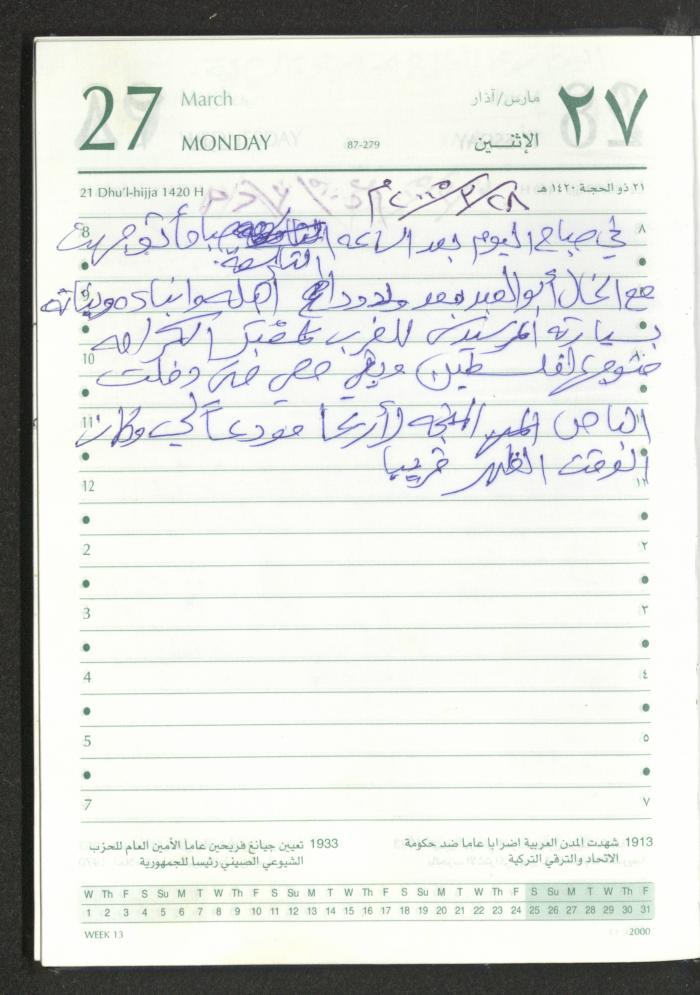 27 March مارس/آذار ٢٧
MONDAY 87-279 الإثنـين
21 Dhu'l-hijja 1420 H ٢١ ذو الحجة ١٤٢٠ هـ
٢٠٠٥/٣/٢٨م
8 في صباح اليوم بعد الساعه صباحاً توجهت ٨
التاسعة
9 مع الخال أبو العبد بعد وداع أهله وابناءه وبناته
بسيارته المرسيدس للغرب
10 فلسطين ودخلت
11 الباص المتجه لأريحا مودعاً لي وكان
الوقت الظهر قريبا
12 ١٢
2 ٢
3 ٣
4 ٤
5 ٥
7 ٧
1913 شهدت المدن العربية اضرابا عاما ضد حكومة
الاتحاد والترقي التركية
1933 تعيين جيانغ فريحين عاما الأمين العام للحزب
الشيوعي الصيني رئيسا للجمهورية
W Th F S Su M T W Th F S Su M T W Th F S Su M T W Th F S Su M T W Th F
1 2 3 4 5 6 7 8 9 10 11 12 13 14 15 16 17 18 19 20 21 22 23 24 25 26 27 28 29 30 31
WEEK 13 2000